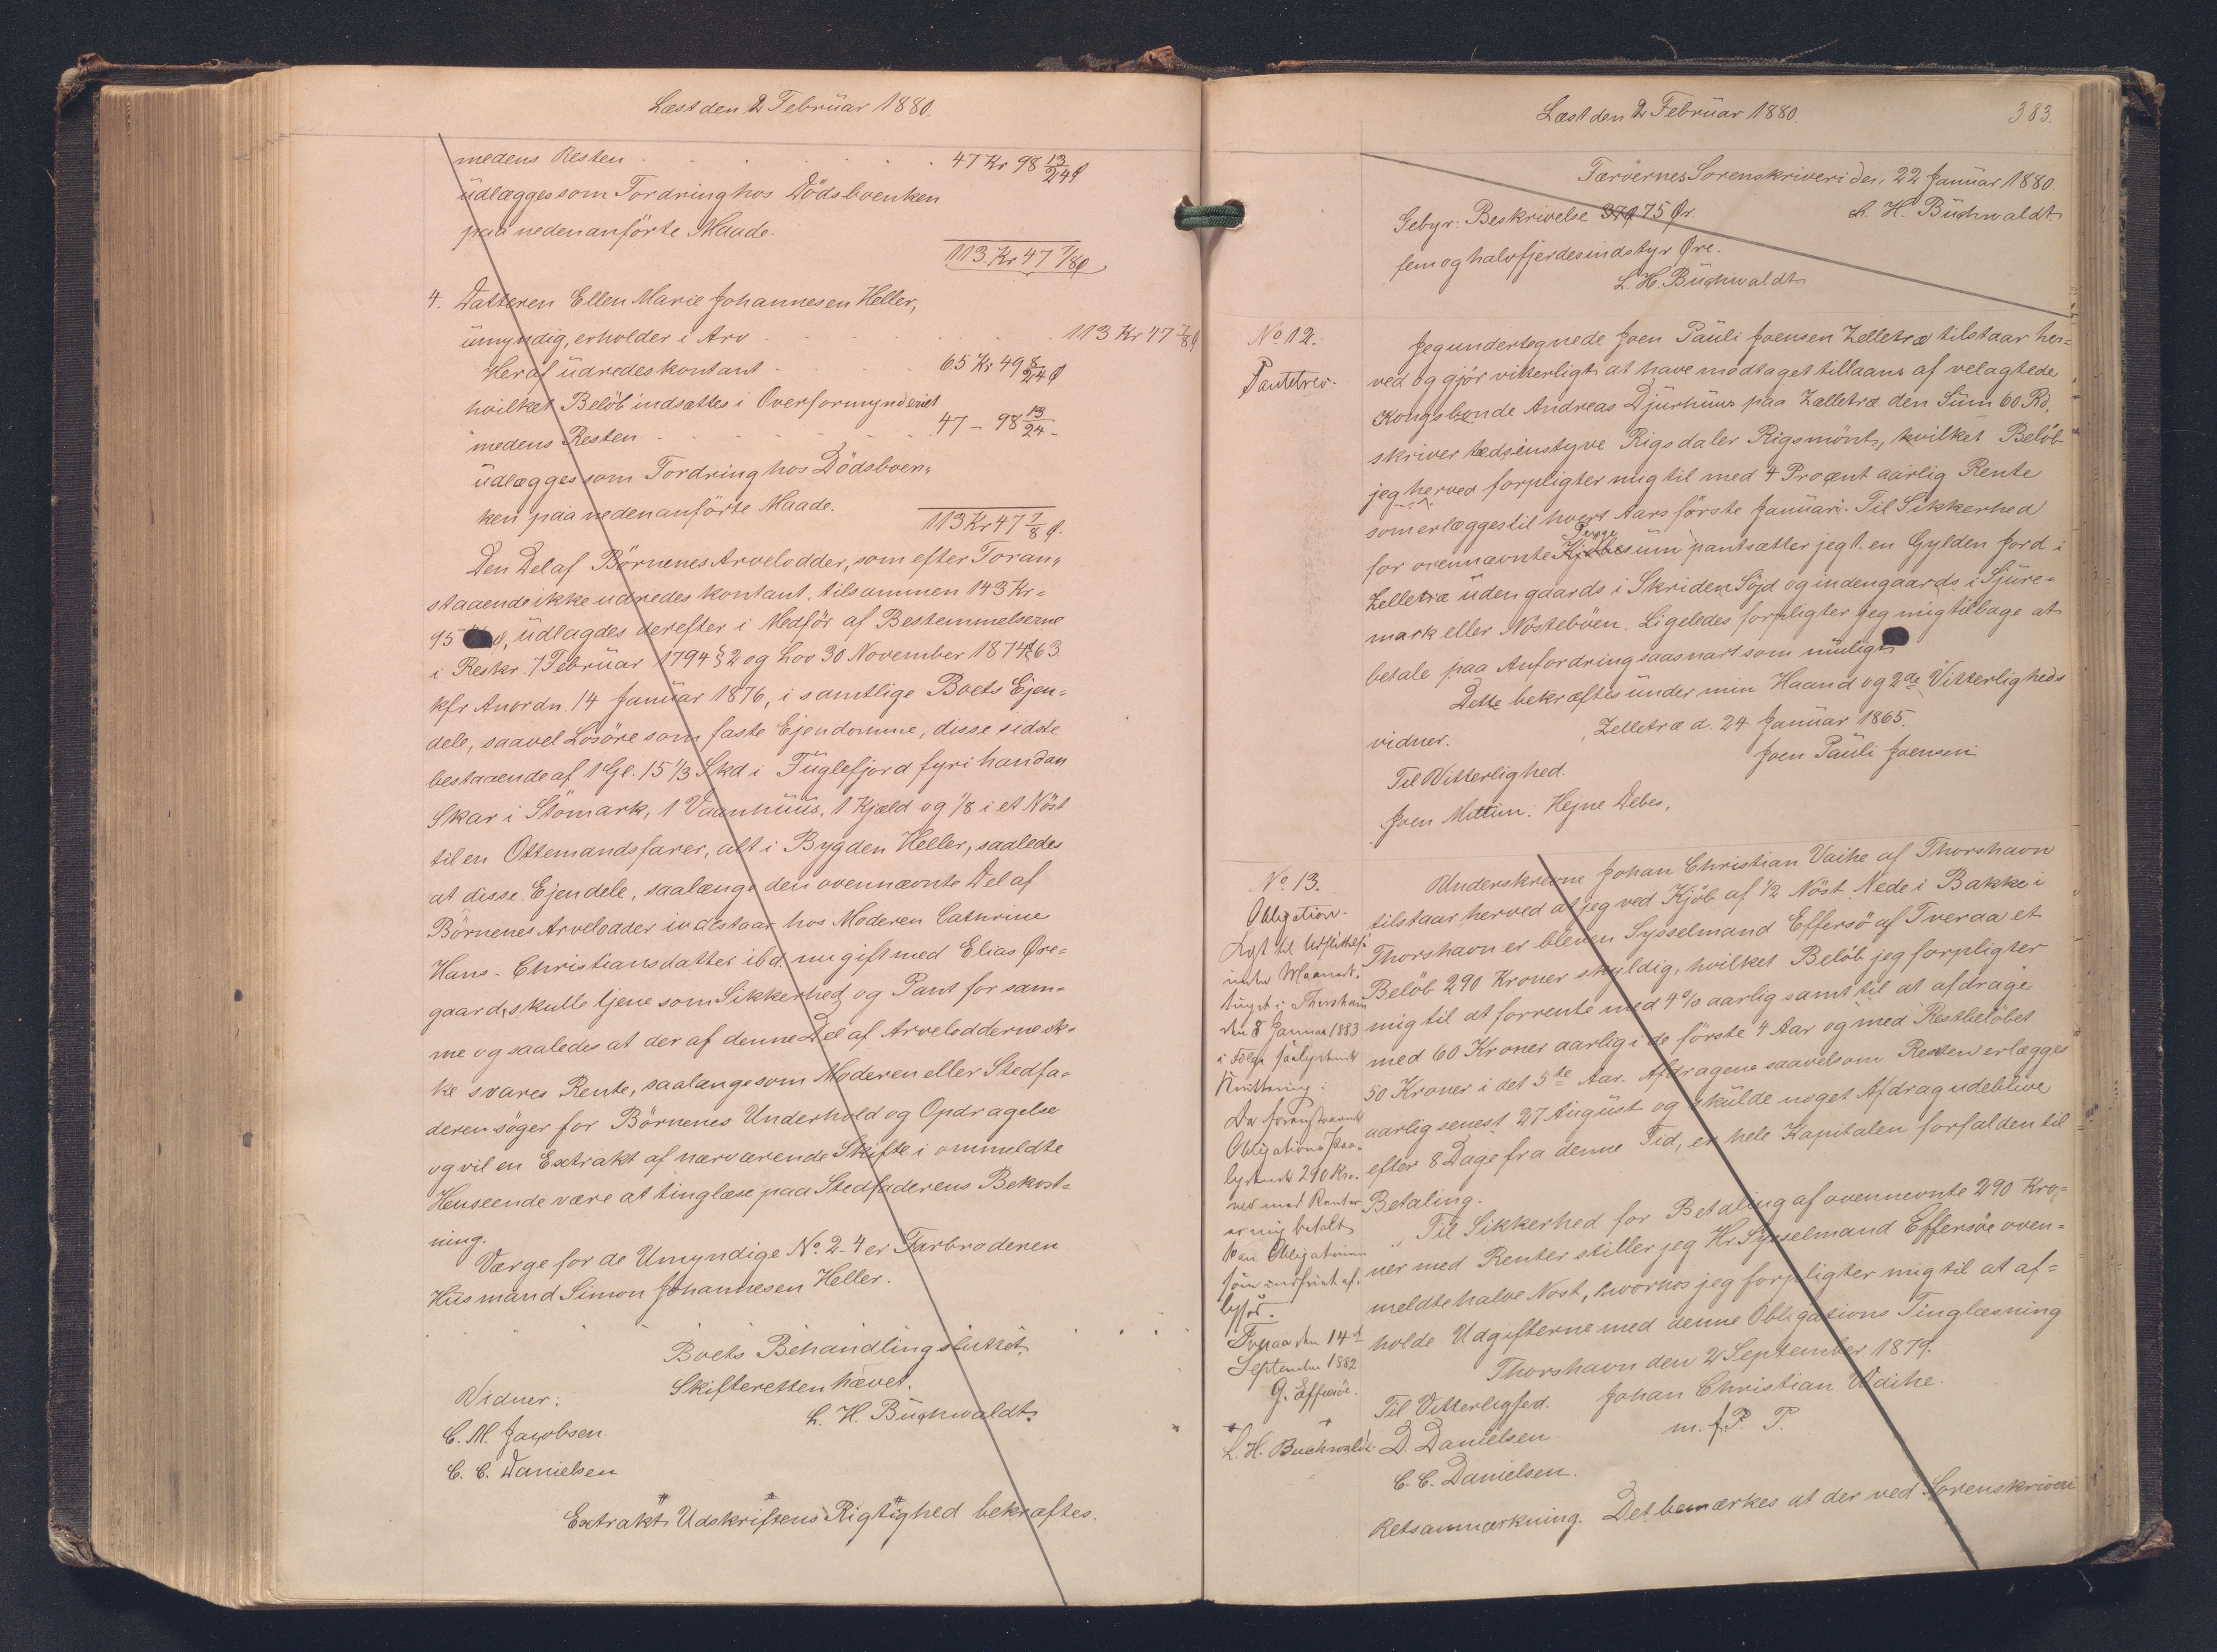 Læst den 2 Februar 1880.
medens Resten . . . . . . . 47 Kr 98 13/24 Ø
udlægges som Fordring hos Dödsboenken
paa nedenanförte Maade.
113. Kr 47 7/8 Ø
4. Datteren Ellen Marie Johannesen Heller,
umyndig, erholder i Arv . . . . . 113 Kr 47 7/8 Ø
Heraf udredes kontant . . . . 65 Kr 49 8/24 Ø
hvilket Belöb indsættes i Overformynderiet
medens Resten . . . . . . 47 - 98 13/24 -
udlægges som Fordring hos Dödsboen„
ken paa nedenanförte Maade.
113 Kr 47 7/8 Ø.
Den Del af Börnenes Arvelodder, som efter Foran„
staaende ikke udredes kontant, tilsammen 143 Kr =
95 Ø, udlagdes derefter i Medför af Bestemmelserne
i Reskr. 7 Februar 1794 § 2 og Lov 30 November 1874 § 63
kfr Anordn. 14 Januar 1876, i samtlige Boets Ejen=
dele, saavel Lösöre som faste Ejendomme, disse sidste
bestaaende af 1 Gl. 15 1/3 Skd i Fuglefjord fyri handan
Skar i Stömark, 1 Vaanhuus, 1 Kjæld og 1/8 i et Nöst
til en Ottemandsfarer, alt i Bygden Heller, saaledes
at disse Ejendele, saalænge den ovennævnte Del af
Börnenes Arvelodder indestaar hos Moderen Cathrine
Hans-Christiansdatter ibd. nu gift med Elias Öre=
gaard, skulle tjene som Sikkerhed og Pant for sam=
me og saaledes at der af denne Del af Arvelodderne ik=
ke svares Rente, saalænge som Moderen eller Stedfa=
deren söger for Börnenes Underhold og Opdragelse
og vil en Extrakt af nærværende Skifte i ommeldte
Henseende være at tinglæse paa Stedfaderens Bekost=
ning.
Værge for de Umyndige No. 2-4 er Farbroderen
Husmand Simon Johannesen Heller.
Boets Behandling sluttet.
Skifteretten hævet.
L. H. Buchwaldt.
Vidner:
C. M. Jacobsen
C. C. Danielsen
Extrakt Udskriftens Rigtighed bekræftes.
Læst den 2 Februar 1880.
383.
Færöernes Sorenskriveri den, 22 Januar 1880.
L. H. Buchwaldt
Gebyr: Beskrivelse 37Ø 75 Ør.
fem og halvfjerdesindstyr Øre.
L. H. Buchwaldt
No 12.
Pantebrev.
Jeg undertegnede Joen Pauli Joensen Zelletræ tilstaar her=
ved og gjör vitterligt at have modtaget tillaans af velagtede
Kongsbonde Andreas Djurhuus paa Zælletræ den Sum 60 Rd,
skriver tredsinstyve Rigsdaler Rigsmönt, hvilket Belöb
jeg herved forpligter mig til med 4 Procent aarlig Rente
som erlægges til hvert Aars förste Januari. Til Sikkerhed
for ovennævnte Kjöbesum Penge pantsætter jeg 1. en Gylden Jord i
Zelletræ udengaards i Skriden Söjd og indengaards i Sjure=
mark eller Nösteböen. Ligeledes forpligter jeg mig tilbage at
betale paa Anfordring saasnart som muligt
Dette bekræftes under min Haand og 2de Vitterligheds
vidner.
Zelletræ d. 24 Januar 1865.
Joen Pauli Joensen
Til Vitterlighed.
Joen Mittun. Hejne Debes.
No. 13.
Obligation.
Lyst til Udslettelse
under Maaneds„
tinget i Thorshavn
den 8 Januar 1883
i Følge saalydende
Kvittering:
Da foranstaaende
Obligations Paa„
lydende 290 Kro„
ner med Renter
er mig betalt
kan Obligationen
som indfriet af„
lyses.
Tveraa den 14de
September 1882
G. Effersöe.
L. H. Buchwaldt
Underskrevne Johan Christian Vaihe af Thorshavn
tilstaar herved at jeg ved Kjöb af 1/2 Nöst Nede i Bakke i
Thorshavn er bleven Sysselmand Effersö af Tveraa et
Belöb 290 Kroner skyldig, hvilket Belöb jeg forpligter
mig til at forrente med 4% aarlig samt til at afdrage
med 60 Kroner aarlig i de förste 4 Aar og med Restbelöbet
50 Kroner i det 5te Aar. Afdragene saavelsom Renten erlægges
aarlig senest 27 August og skulde noget Afdrag udeblive
efter 8 Dage fra denne Tid, er hele Kapitalen forfalden til
Betaling.
Til Sikkerhed for Betaling af ovennevnte 290 Kro„
ner med Renter stiller jeg Hr Sysselmand Effersöe oven=
meldte halve Nöst, hvorhos jeg forpligter mig til at af=
holde Udgifterne med denne Obligations Tinglæsning
Thorshavn den 2 September 1879.
Til Vitterlighed. Johan Christian Vaihe.
D. Danielsen m. f. P. P.
C. C. Danielsen.
Retsanmærkning. Det bemærkes at der ved Sorenskriveri